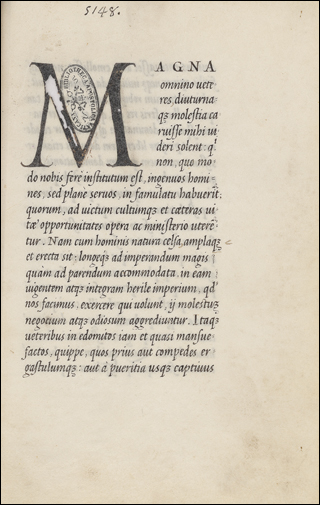 5148.
MAGNA
omnino uete
res, diuturna
q; molestia ca
ruisse mihi ui
deri solent: qd
non, quo mo
do nobis ferè institutum est, ingenuos homi
nes, sed planè seruos, in famulatu habuerīt:
quorum, ad uictum cultumq; et cæteras ui
tæ opportunitates opera ac ministerio uterē
tur. Nam cum hominis natura celsa, amplaq;
et erecta sit: longeq; ad imperandum magis
quàm ad parendum accommodata. in eam
uigentem atq; integram herile imperium, qd
nos facimus. exercere qui uolunt, ij molestū
negocium atq; odiosum aggrediuntur. Itaq;
ueteribus in edomitos iam et quasi mansue
factos, quippe, quos prius aut compedes er
gastulumq;: aut à pueritia usq; captiuus